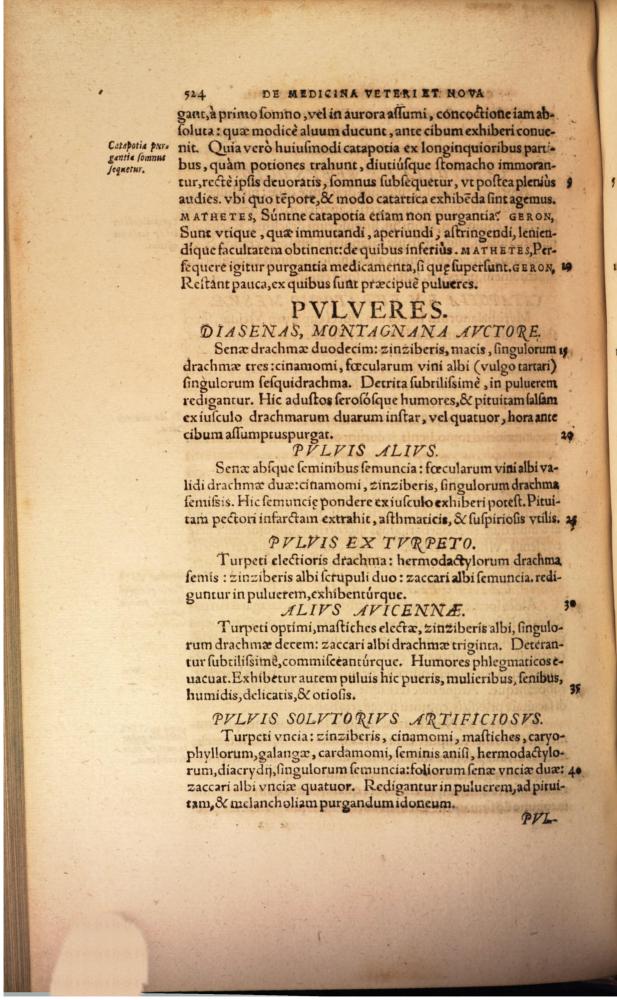 524 DE MEDICINA VETERI ET NOVA
gant, à primo somno, vel in aurora assumi, concoctione iam ab-
soluta: quæ modicè aluum ducunt, ante cibum exhiberi conue-
Catapotia pur-
gantia somnus
sequetur.
nit. Quia verò huiusmodi catapotia ex longinquioribus parti-
bus, quàm potiones trahunt, diutiúsque stomacho immoran-
tur, rectè ipsis deuoratis, somnus subsequetur, vt postea plenius 5
audies. vbi quo tẽpore, & modo catartica exhibẽda sint agemus.
MATHETES, Súntne catapotia etiam non purgantia? GERON,
Sunt vtique, quæ immutandi, aperiundi, astringendi, lenien-
díque facultatem obtinent: de quibus inferiùs. MATHETES, Per-
sequere igitur purgantia medicamenta, si quę supersunt. GERON, 10
Restant pauca, ex quibus sunt præcipuè pulueres.
PVLVERES.
DIASENAS, MONTAGNANA AVCTORE.
Senæ drachmæ duodecim: zinziberis, macis, singulorum 15
drachmæ tres: cinamomi, fœcularum vini albi (vulgo tartari)
singulorum sesquidrachma. Detrita subtilissimè, in puluerem
redigantur. Hic adustos serosósque humores, & pituitam salsam
ex iusculo drachmarum duarum instar, vel quatuor, hora ante
cibum assumptus purgat. 20
PVLVIS ALIVS.
Senæ absque seminibus semuncia: fœcularum vini albi va-
lidi drachmæ duæ: cinamomi, zinziberis, singulorum drachma
semissis. Hic semuncię pondere ex iusculo exhiberi potest. Pitui-
tam pectori infarctam extrahit, asthmaticis, & suspiriosis vtilis. 25
PVLVIS EX TVRPETO.
Turpeti electioris drachma: hermodactylorum drachma
semis: zinziberis albi scrupuli duo: zaccari albi semuncia. redi-
guntur in puluerem, exhibentúrque.
ALIVS AVICENNÆ. 30
Turpeti optimi, mastiches electæ, zinziberis albi, singulo-
rum drachmæ decem: zaccari albi drachmæ triginta. Deteran-
tur subtilissimè, commisceantúrque. Humores phlegmaticos e-
uacuat. Exhibetur autem puluis hic pueris, mulieribus, senibus,
humidis, delicatis, & otiosis. 35
PVLVIS SOLVTORIVS ARTIFICIOSVS.
Turpeti vncia: zinziberis, cinamomi, mastiches, caryo-
phyllorum, galangæ, cardamomi, seminis anisi, hermodactylo-
rum, diacrydij, singulorum semuncia: foliorum senæ vnciæ duæ: 40
zaccari albi vnciæ quatuor. Redigantur in puluerem, ad pitui-
tam, & melancholiam purgandum idoneum.
PVL-